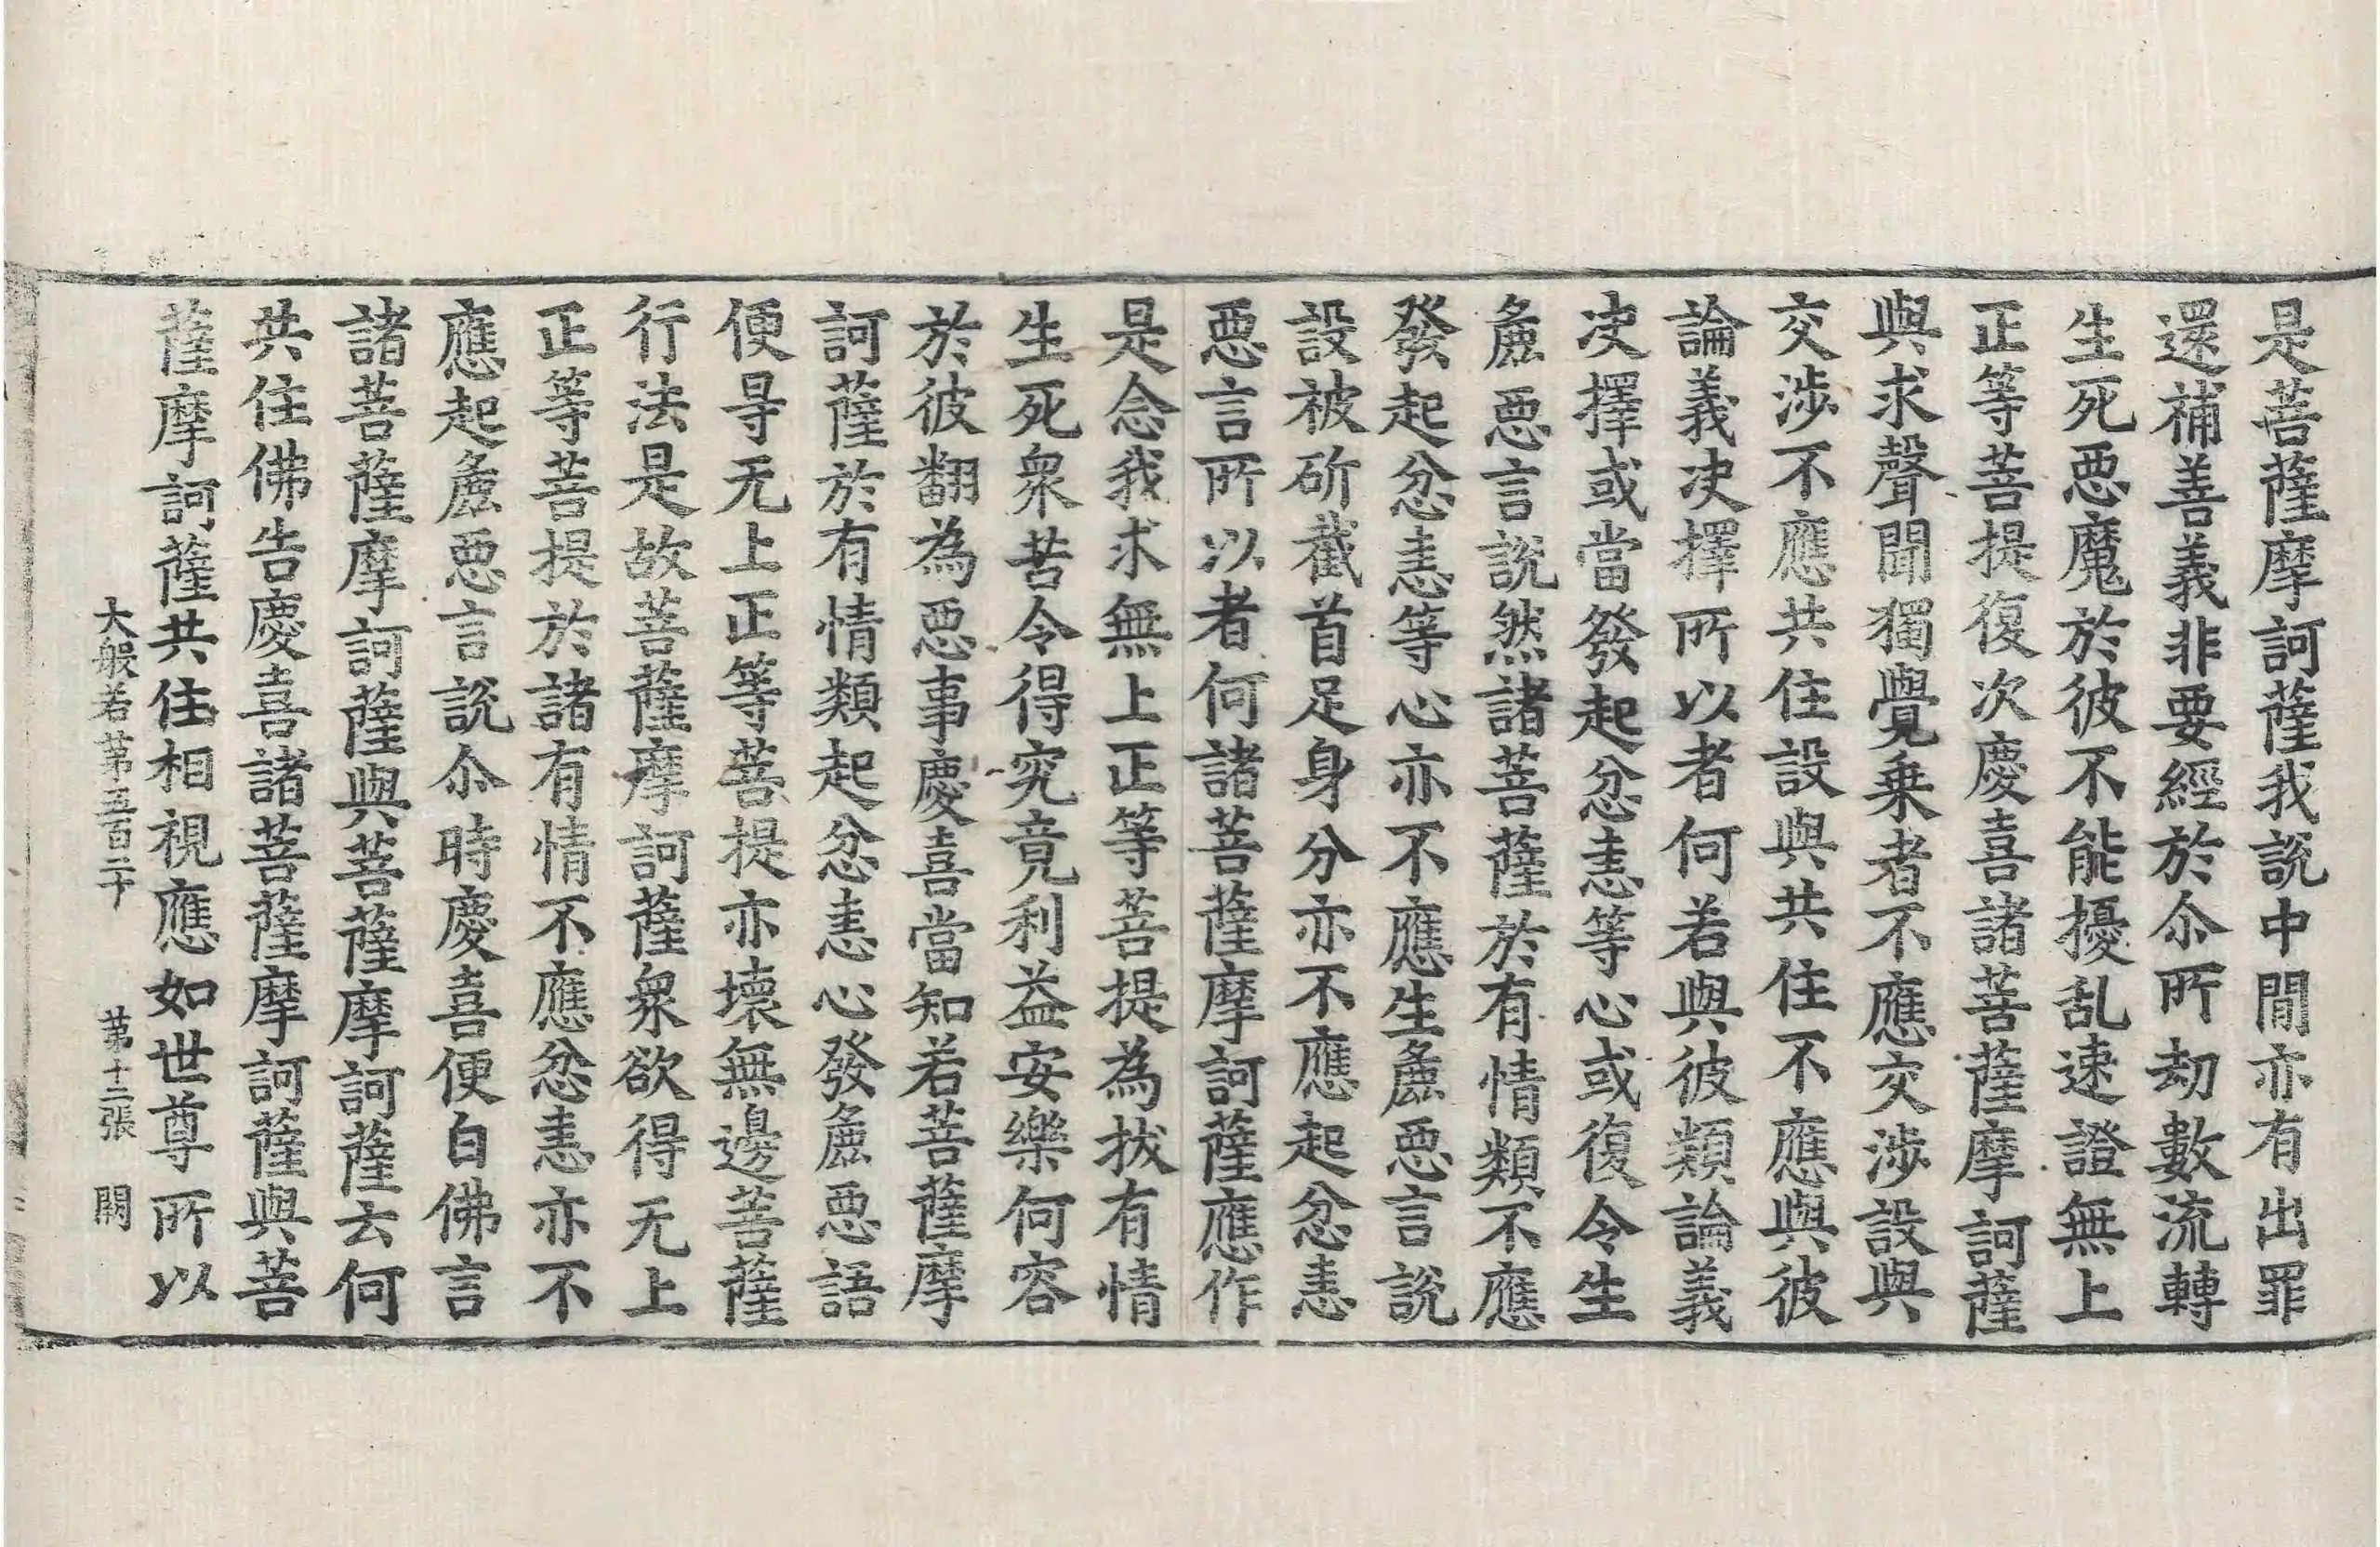 是菩薩摩訶薩我說中閒亦有出罪
還補善義非要經於尒所劫數流轉
生死惡魔於彼不能擾乱速證無上
正等菩提復次慶喜諸菩薩摩訶薩
與求聲聞獨覺乗者不應交涉設與
交涉不應共住設與共住不應與彼
論義決擇所以者何若與彼類論義
決擇或當發起忿恚等心或復令生
麁惡言說然諸菩薩於有情類不應
發起忿恚等心亦不應生麁惡言說
設被斫截首足身分亦不應起忿恚
惡言所以者何諸菩薩摩訶薩應作
是念我求無上正等菩提為拔有情
生死衆苦令得究竟利益安樂何容
於彼翻為惡事慶喜當知若菩薩摩
訶薩於有情類起忿恚心發麁惡語
便㝵无上正等菩提亦壞無邊菩薩
行法是故菩薩摩訶薩衆欲得无上
正等菩提於諸有情不應忿恚亦不
應起麁惡言說尒時慶喜便白佛言
諸菩薩摩訶薩與菩薩摩訶薩云何
共住佛告慶喜諸菩薩摩訶薩與菩
薩摩訶薩共住相視應如世尊所以
大般若第五百二十　第十三張　闕